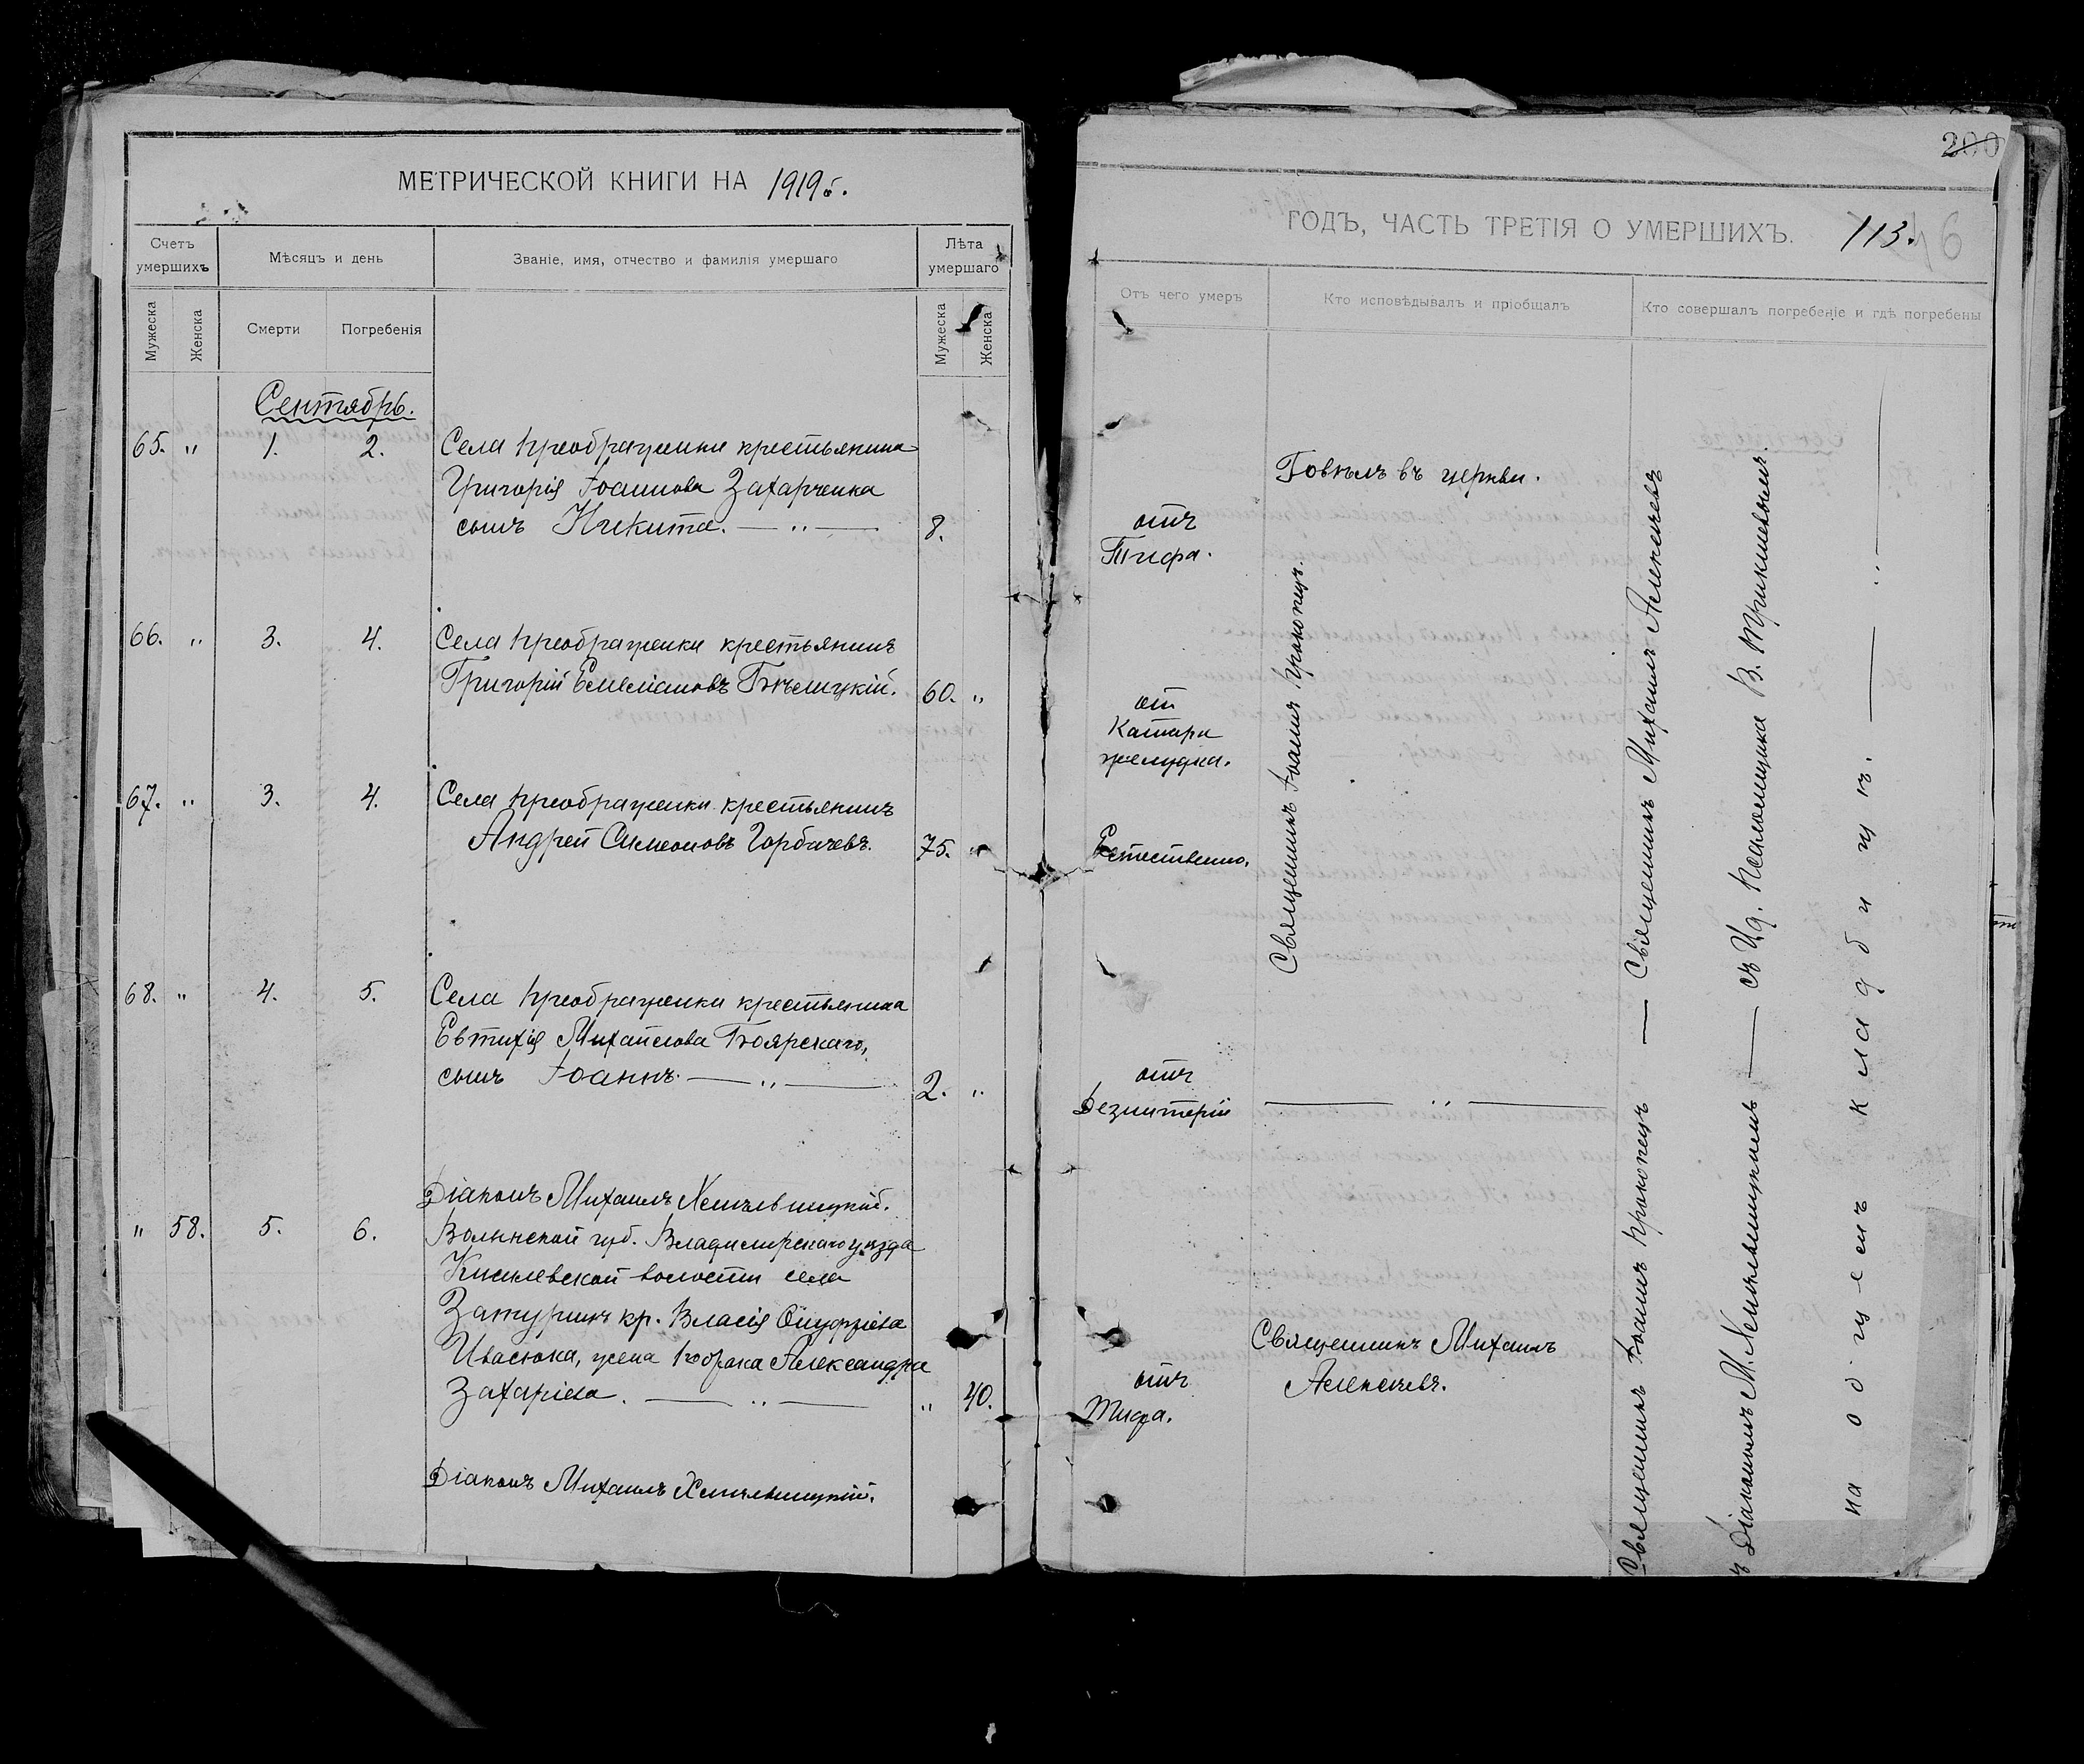 МЕТРИЧЕСКОЙ КНИГИ НА 1919 г.
Счетъ умершихъ
Мѣсяцъ и день
Званіе, имя, отчество и фамилія умершаго
Лѣта умершаго
Мужеска
Женска
Смерти
Погребенія
Мужеска
Женска
Сентябрь.
65. " 1. 2. Села Преображенки крестьянина
Григорія Іоаннова Захарченка
сынъ Никита. — " — 8.
66. " 3. 4. Села Преображенки крестьянинъ
Григорій Емеліановъ Бѣлицкій. 60. "
67. " 3. 4. Села Преображенки крестьянинъ
Андрей Симеоновъ Горбачевъ. 75. "
68. " 4. 5. Села Преображенки крестьянина
Евтихія Михайлова Боярскаго,
сынъ Іоаннъ. — " — 2. "
Діаконъ Михаилъ Хмѣльницкій.
" 58. 5. 6. Волынской губ. Владимирскаго уѣзда
волости села
Затурцы кр. Власія Онуфріева
Ивасюка, жена Александра
Захаріева. — " — " 40.
Діаконъ Михаилъ Хмѣльницкій.
200
ГОДЪ, ЧАСТЬ ТРЕТІЯ О УМЕРШИХЪ. 113.
Отъ чего умеръ
Кто исповѣдывалъ и пріобщалъ
Кто совершалъ погребеніе и гдѣ погребены
отъ
Тифа.
Говѣлъ въ церкви.
от
Катара
желудка.
Естественно.
Священникъ Іоаннъ Прокопецъ.
отъ
Дезинтеріи — " —
отъ
Тифа.
Священникъ Михаилъ
Алексѣевъ.
Священникъ Іоаннъ Прокопецъ — Священникъ Михаилъ Алексѣевъ
съ Діакономъ М. Хмѣльницкимъ — съ И. д. Псаломщика В.
на общемъ кладбищѣ. — " —